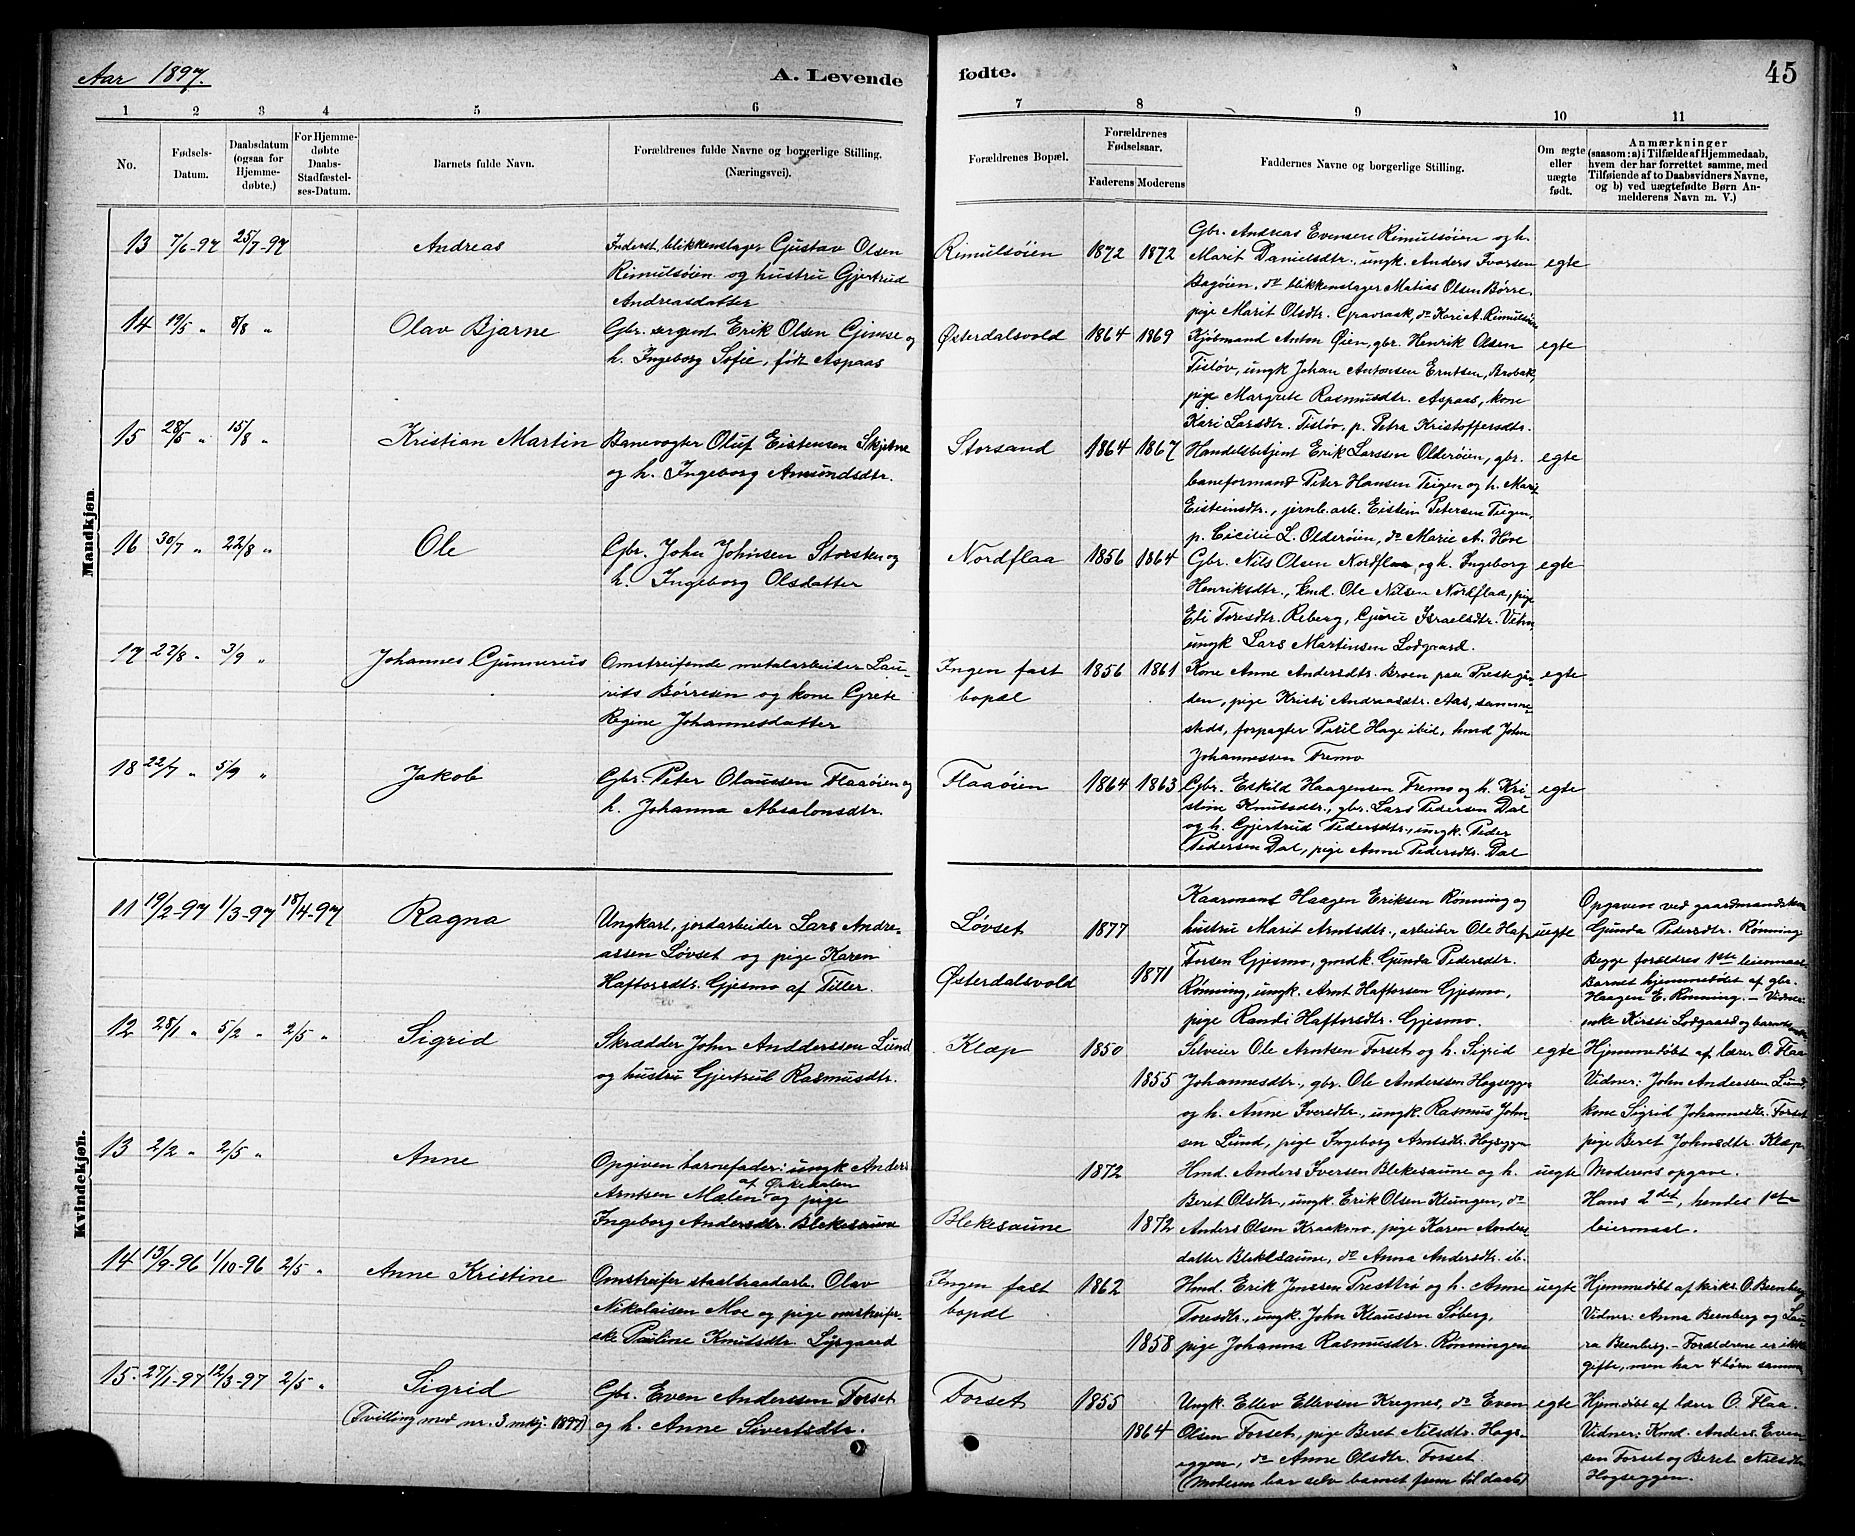 Aar 1897.
A. Levende
fødte.
45
1 2 3 4 5 6
7 8 9 10 11
No.
Fødsels-
Datum.
Daabsdatum
(ogsaa for
Hjemme-
døbte.)
For Hjemme-
døbte
Daabs-
Stadfæstel-
ses-Datum.
Barnets fulde Navn.
Forældrenes fulde Navne og borgerlige Stilling.
(Næringsvei).
Forældrenes Bopæl.
Forældrenes
Fødselsaar.
Faderens Moderens
Faddernes Navne og borgerlige Stilling.
Om ægte
eller
uægte
født.
Anmærkninger
(saasom: a) i Tilfælde af Hjemmedaab,
hvem der har forrettet samme, med
Tilføiende af to Daabsvidners Navne,
og b) ved uægtefødte Børn An-
melderens Navn m. V.)
Mandkjøn.
13 7/6-97 25/7-97
Andreas
Inderst, blikkenslager Gustav Olsen
Rimulsøien og hustru Gjertrud
Andreasdatter
Rimulsøien
1872 1872
Gbr. Andreas Evensen Rimulsøien og h.
Marit Danielsdtr., ungk. Anders Ivarsen
Bagøien, do blikkenslager Matias Olsen Børre,
pige Marit Olsdtr. Gravraak, do Kari A. Rimulsøien
egte
14 19/5 " 8/8 "
Olav Bjarne
Gbr. sergent Erik Olsen Gimse og
h. Ingeborg Sofie, født Aspaas
Østerdalsvold
1864 1869
Kjøbmand Anton Øien, gbr. Henrik Olsen
Tisløv, ungk Johan Antonsen Erntsen, Brobak,
pige Margrete Rasmusdtr. Aspaas, kone
Kari Larsdtr. Tisløv, p. Petra Kristoffersdtr.
egte
15 28/5 " 15/8 "
Kristian Martin
Banevogter Oluf Eistensen Skjetne
og h. Ingeborg Amundsdtr.
Storsand
1864 1867
Handelsbetjent Erik Larssen Olderøien, gbr.
baneformand Peter Hansen Teigen og h. Marit
Eisteinsdtr., jernb.arb. Eistein Petersen Teigen,
p. Cicilie L. Olderøien, do Marie A. Hove
egte
16 30/7 " 22/8 "
Ole
Gbr. John Johnsen Storsten og
h. Ingeborg Olsdatter
Nordflaa
1856 1864
Gbr. Nils Olsen Nordflaa, og h. Ingeborg
Henriksdtr., kmd. Ole Nilsen Nordflaa, pige
Eli Toresdtr. Reberg, Guru Israelsdtr. Vehn,
ungk Lars Martinsen Lodgaard.
egte
17 27/8 " 3/9 "
Johannes Gunnerius
Omstreifende metalarbeider Lau-
rits Børresen og kone Grete
Regine Johannesdatter
Ingen fast
bopæl
1856 1861
Kone Anne Andersdtr. Broen paa Prestegår-
den, pige Kristi Andreasdtr. Aas, samme-
steds, forpagter Paul Hage ibid, hmd John
Johannessen Fremo
egte
18 22/7 " 5/9 "
Jakob
Gbr. Peter Olaussen Flaaøien og
h. Johanna Absalonsdtr.
Flaaøien
1864 1863
Gbr. Eskild Haagensen Fremo og h. Kri-
stine Knutsdtr., gbr. Lars Pedersen Dal
og h. Gjertrud Pedersdtr., ungk. Peder
Pedersen Dal, pige Anne Pedersdtr. Dal
egte
Kvindekjøn.
11 19/2-97 1/3-97 18/4-97
Ragna
Ungkarl, jordarbeider Lars Andre-
assen Løvset og pige Karen
Haftorsdtr. Gjesmo af Tiller.
Løvset
Østerdalsvold
1877
1871
Kaarmand Haagen Eriksen Rønning og
hustru Marit Arntsdtr., arbeider Ole Haf-
torsen Gjesmo, gmdk. Gunda Pedersdtr.
Rønning, ungk. Arnt Haftorsen Gjesmo,
pige Randi Haftorsdtr. Gjesmo.
uegte
Opgaven ved gaardmandskone
Gunda Pedersdtr. Rønning
Begge forældres 1ste leiermaal.
Barnet hjemmedøbt af gbr.
Haagen E. Rønning. - Vidner
enke Kirsti Lodgaard og
12 28/1 " 5/2 " 2/5 "
Sigrid
Skrædder John Andderssen Lund
og hustru Gjertrud Rasmusdtr.
Klæp
1850
1855
Selveier Ole Arntsen Forset og h. Sigrid
Johannesdtr., gbr. Ole Anderssen Hogseggen
og h. Anne Iversdtr., ungk. Rasmus John-
sen Lund, pige Ingeborg Arntsdtr. Hogseggen
egte
Hjemmedøbt af lærer O. Flaa
Vidner: John Anderssen Lund,
kone Sigrid Johannesdtr. Forset
pige Beret Johnsdtr. Klæp
13 2/2 " 2/5 "
Anne
Opgiven barnefader: ungk Anders
Arntsen Mælen af Ørkedalen og pige
Ingeborg Andersdtr. Blekesaune
Blekesaune
1872
1872
Hmd. Anders Iversen Blekesaune og h.
Beret Olsdtr., ungk. Erik Olsen Klungen, do
Anders Olsen Kraakmo, pige Karen Anders-
datter Blekesaune, do Anna Andersdtr. ib.
uegte
Moderens opgave.
Hans 2det, hendes 1ste
leiermaal.
14 13/9-96 1/10-96 2/5 "
Anne Kristine
Omstreifer staaltraadarb. Olav
Nikolaisen Moe og pige omstreifer-
ske Pauline Knutsdtr. Lysgaard
Ingen fast
bopæl
1862
1858
Hmd. Erik Jenssen Presttrø og h. Anne
Toresdtr., ungk. John Klaussen Søberg,
pige Johanna Rasmusdtr. Rønningen
uegte
Hjemmedøbt af kirks. O. Beenberg
Vidner: Anna Beenberg og Lau-
ra Beenberg. - Forældrene er ikke
gifte, men har 4 børn samme
15. 27/1-97 12/3-97 2/5 "
Sigrid
(Tvilling med nr. 3 mkj. 1897)
Gbr. Even Anderssen Forset
og h. Anne Sivertsdtr.
Forset
1855
1864
Ungk. Ellev Ellevsen Kregnes, do Even
Olsen Forset, pige Beret Nilsdtr. Hogs-
eggen, do Anne Olsdtr. Forset.
(Moderen bar selv barnet frem til daab)
egte
Hjemdøbt af lærer O. Flaa.
Vidner: Kmd. Anders Even-
sen Forset og Beret Nilsdtr
Hogseggen.